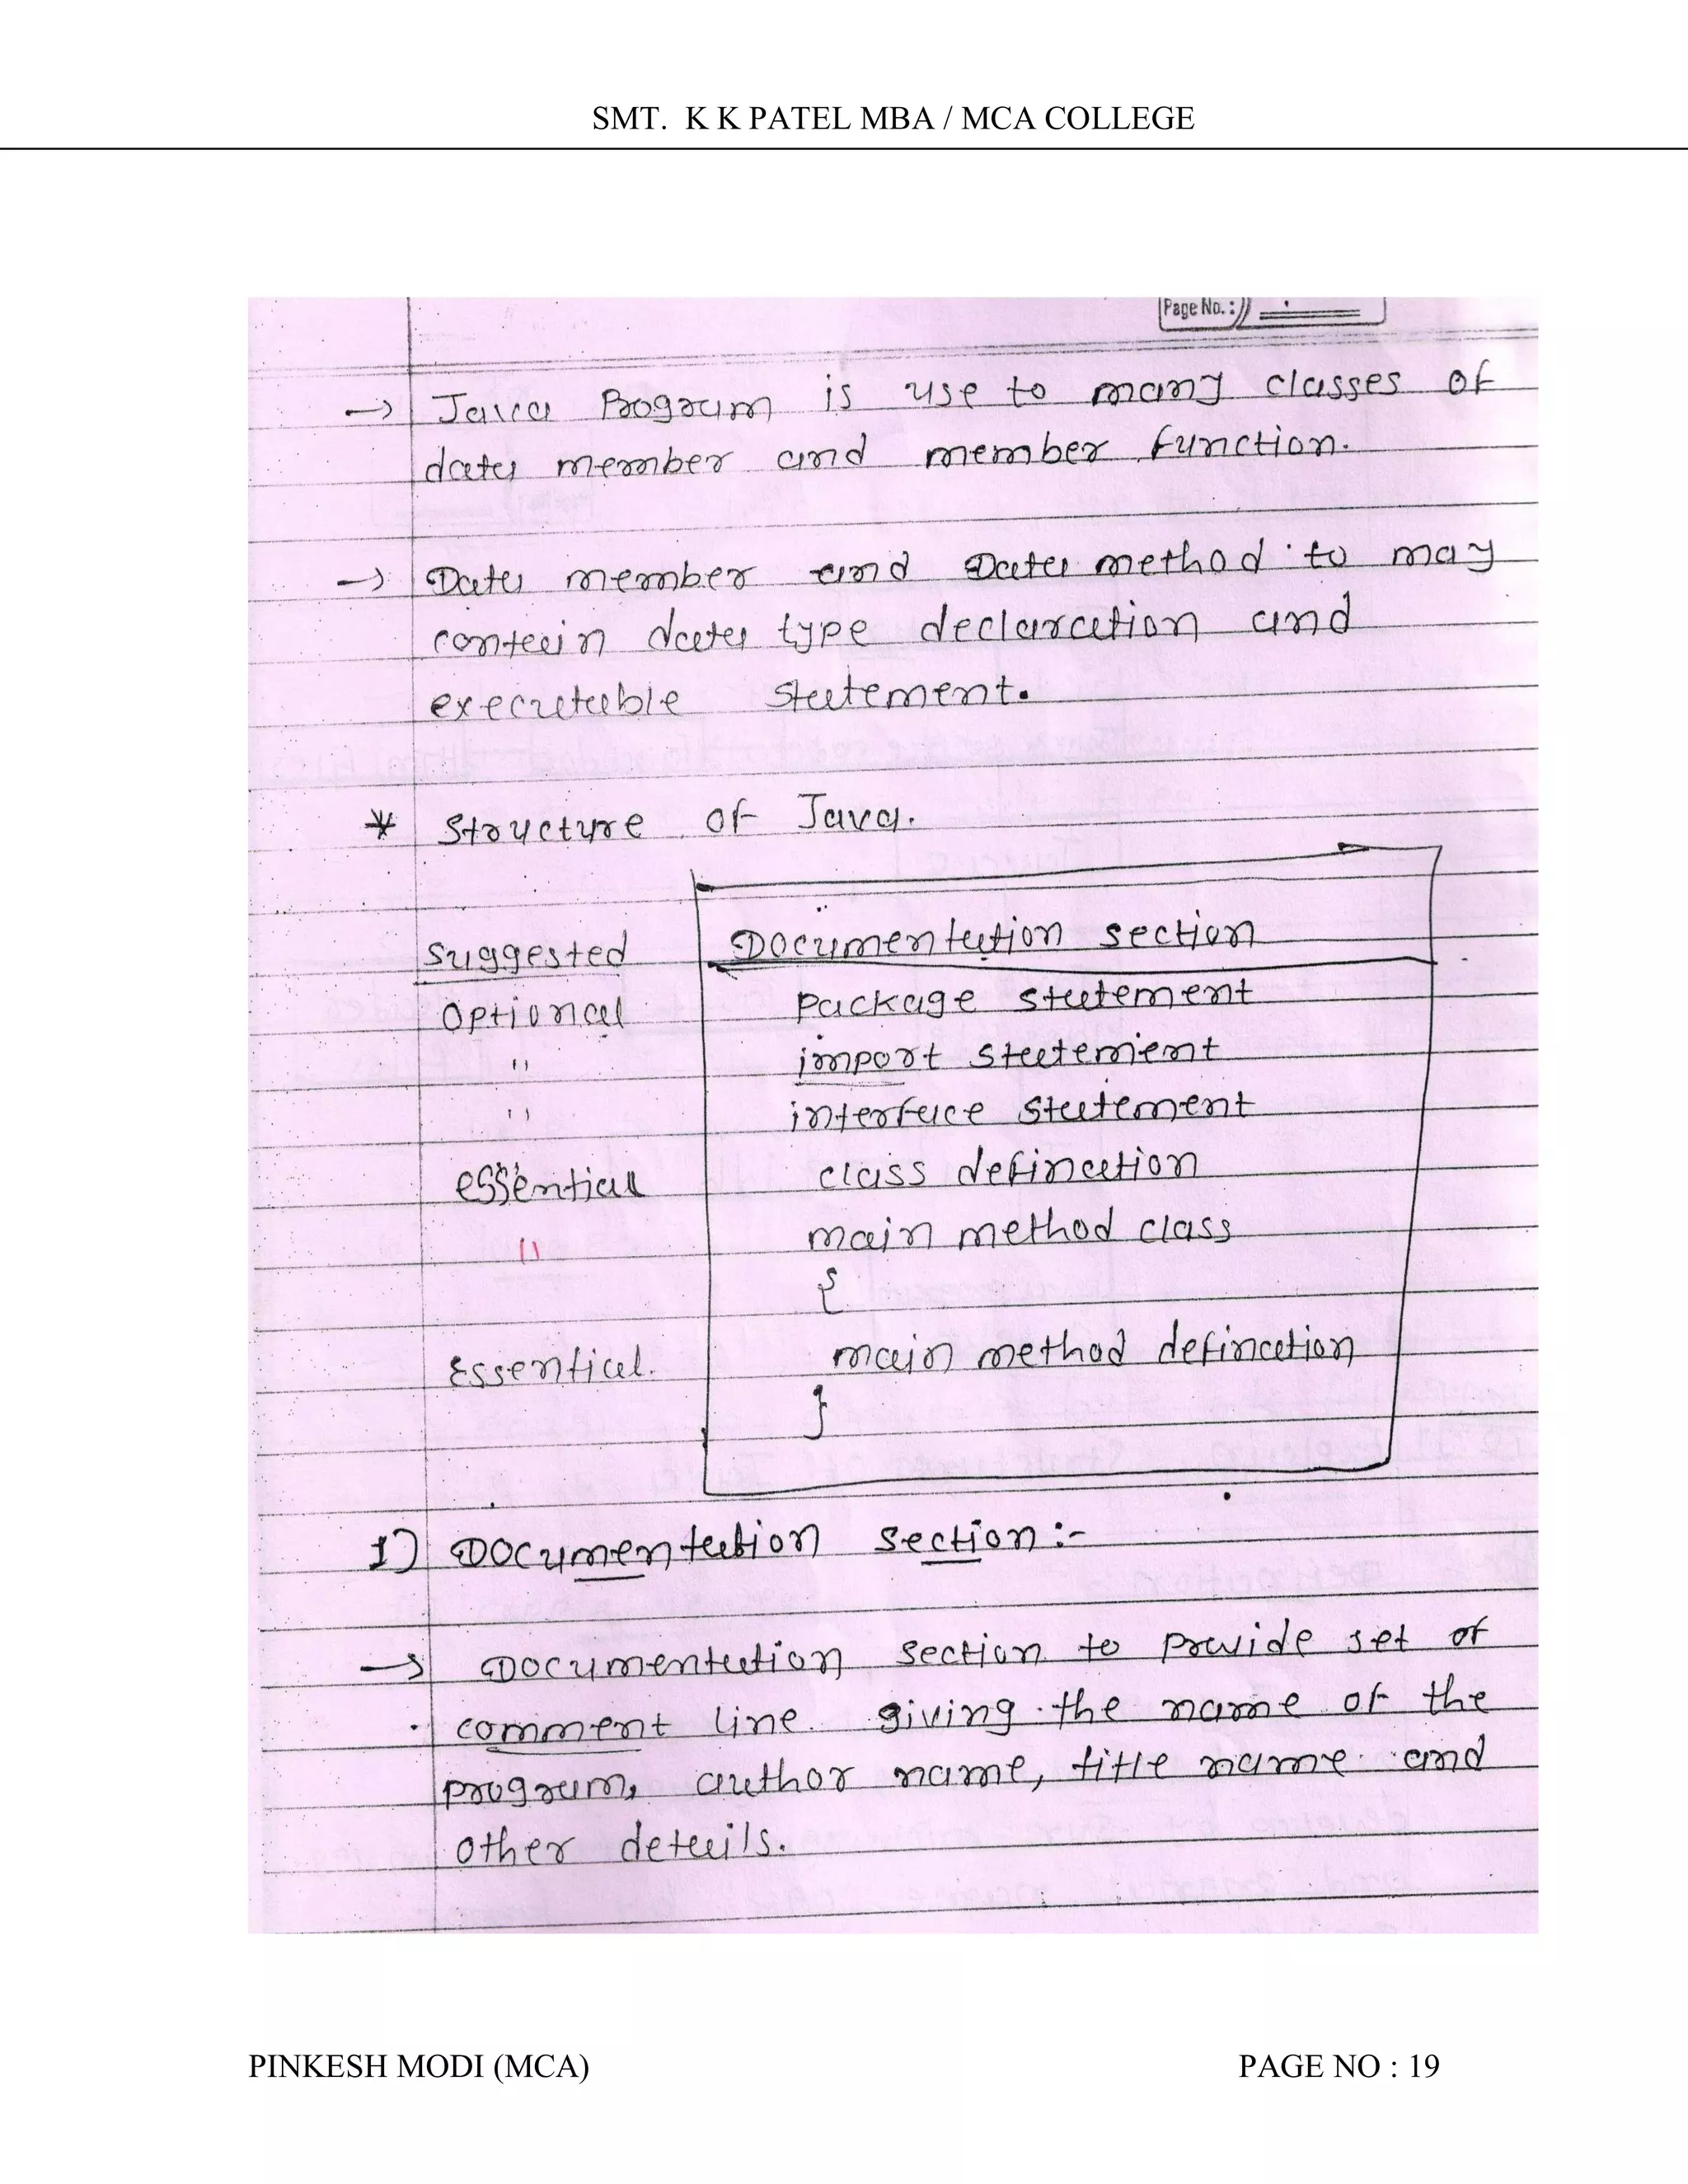 SMT. K K PATEL MBA / MCA COLLEGE
Page No. :
→ Java Program is use to many classes of
data member and member function.
→ Data member and Data method to may
contain data type declaration and
executable statement.
* Structure of Java.
Suggested Documentation section
Optional package statement
" import statement
" interface statement
essential class defination
" main method class
{
Essential. main method defination
}
1) Documentation section :-
→ Documentation section to provide set of
comment line giving the name of the
program, author name, title name and
other details.
PINKESH MODI (MCA) PAGE NO : 19